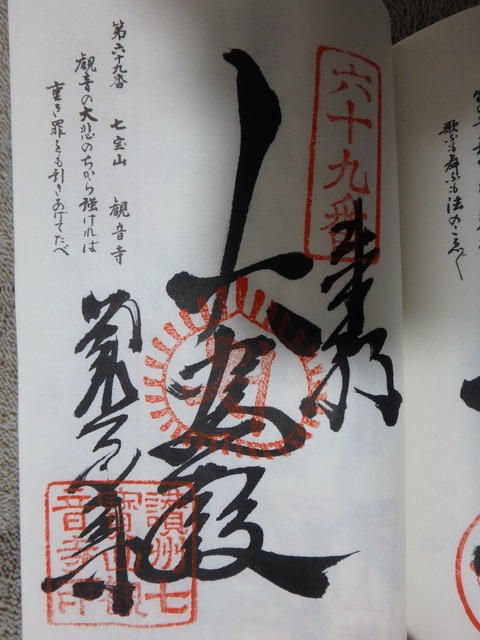 歌ふも舞ふも法のこゑ〴〵
六十九番
奉納
大悲殿
観音寺
讃州七
寳山観
音寺印
第六十九番 七宝山 観音寺
観音の大悲のちから強ければ
重き罪をも引きあげてたべ